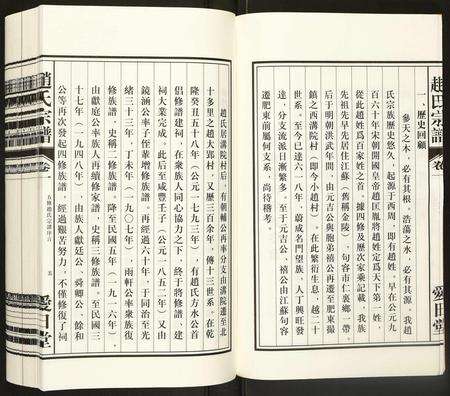 趙氏宗譜
卷
愛日堂
一、歷史回顧
參天之木，必有其根，浩蕩之水，必有其源，我趙
氏宗族歷史悠久，起源于西周，即有趙姓。早在公元九
百六十年宋朝開國皇帝趙匡胤將趙姓定爲天下第一姓，
從此趙姓爲百家姓之首。據四修及歷次家乘記載，我族
先祖先早先居住江蘇（舊稱金陵），句容市仁裏鄉一帶，
后于明朝洪武年間，由元吉公與胞弟禧公再遷至肥東撮
鎮之西溝院村（即今小趙村），在此繁衍生息，越二十
世系，至今已達六一八年，蔚成名門望族，人丁興旺發
達，分支流派日漸繁多。至于元吉公、禧公由江蘇句容
遷肥東前屬何支系，尚待稽考。
趙氏居溝院村后，有朝輔公再率分支由溝院遷至北
十多里之趙大郢村，又歷三百余年，傳十三世系，在乾
隆癸丑五十八年（公元一七九三年），有趙氏方水公首
倡修譜建祠，在衆族人同心協力之下，終于將修譜，建
祠大業完成。此后至咸豐壬子（公元一八五二年）又由
鏡涵公率子侄輩增修族譜。再經過六十年，于同治至光
緒三十三年，丁未年（一九〇七年），雨軒公率衆族復
修族譜，史稱二修族譜。降至民國五年（一九一六年），
由獻庭公率族人再續修家譜，史稱三修族譜。至民國三
十七年（一九四八年），由族人獻廷公、舜卿公、餘和
公等再次發起四修族譜，經過艱苦努力，不僅修復了祠
趙氏宗譜
卷
五修趙氏宗譜序言
五
愛日堂